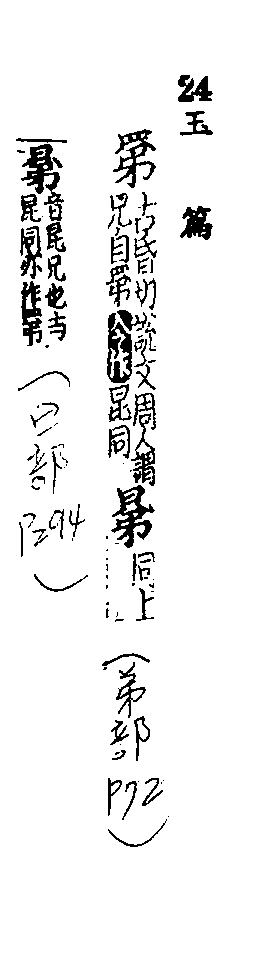 24 玉篇
罤 古昏切說文周人謂
兄曰罤今作昆同
同上
(弟部 P72)
音昆兄也与
昆同亦作罤
(日部 P294)